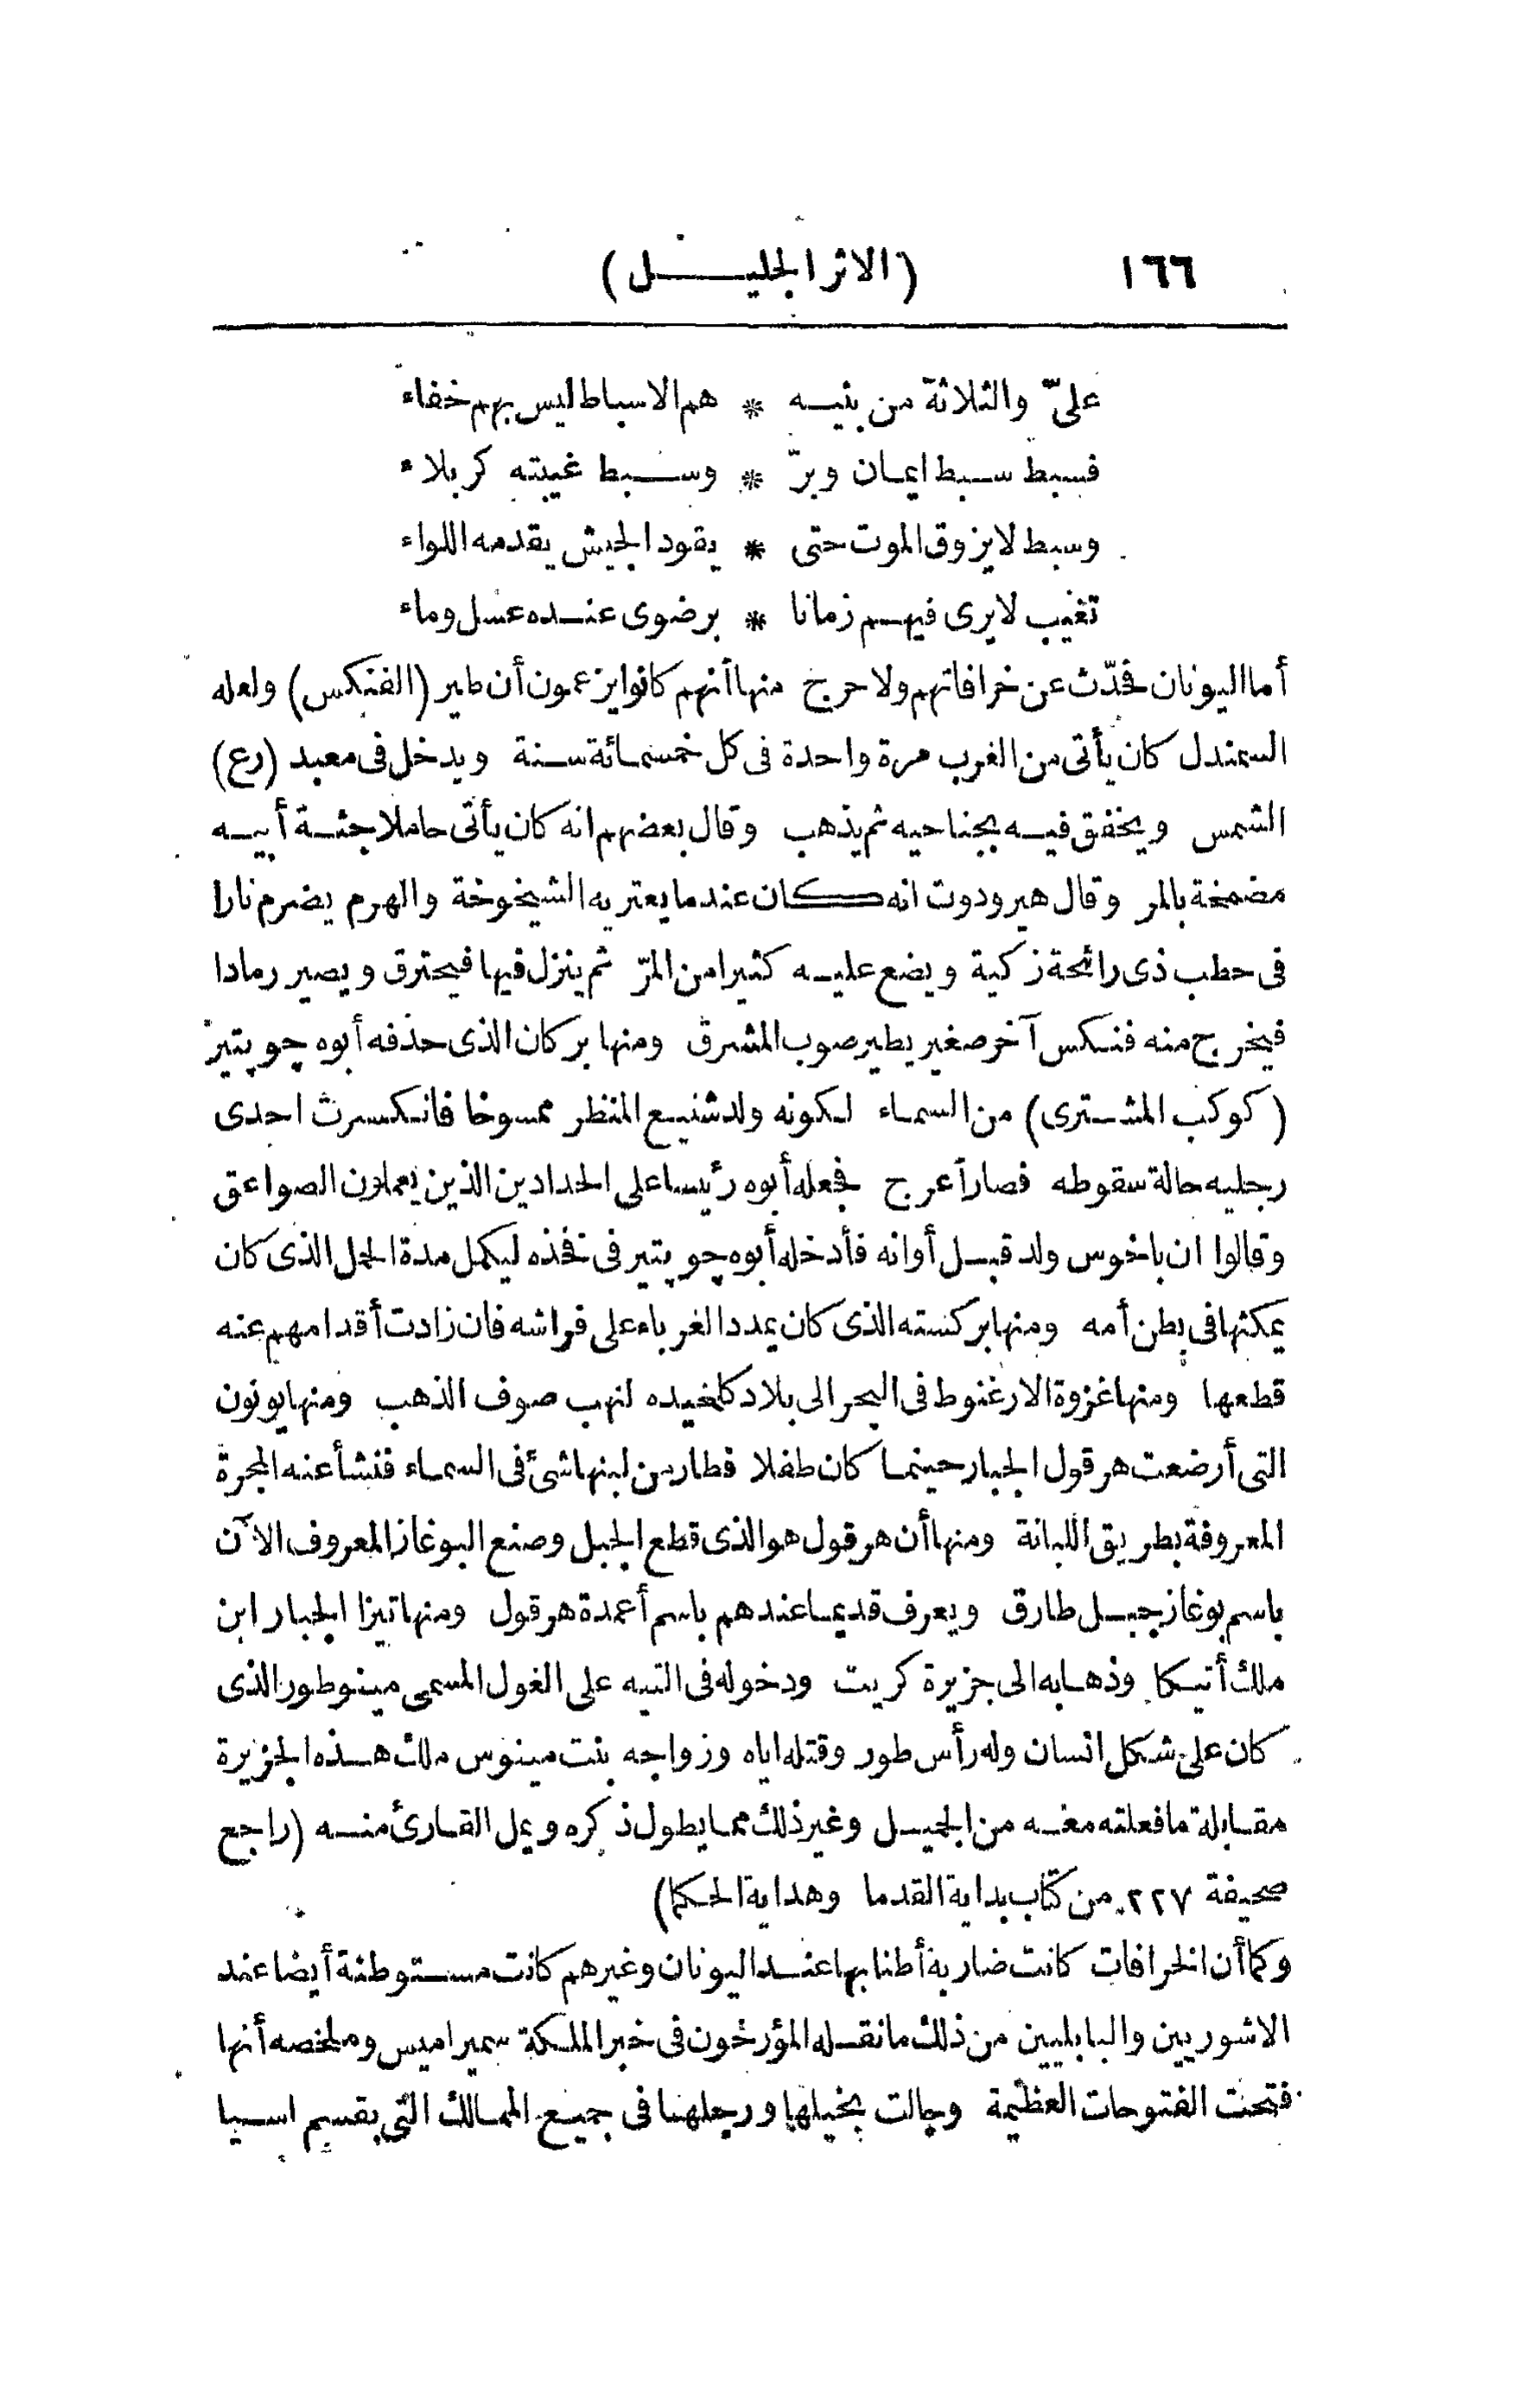 ١٦٦ (الاثر الجليل)
علىّ والثلاثة من بنيه * هم الاسباط ليس بهم خفاء
فسبط سبط ايمان وبرّ * وسبط غيبته كربلاء
وسبط لايزوق الموت حتى * يقود الجيش يقدمه اللواء
تغيب لايرى فيهم زمانا * برضوى عنده عسل وماء
أما اليونان فحدّث عن خرافاتهم ولا حرج منها أنهم كانوا يزعمون أن طير (الفنكس) ولعله
السمندل كان يأتى من الغرب مرة واحدة فى كل خمسمائة سنة ويدخل فى معبد (رع)
الشمس ويخفق فيه بجناحيه ثم يذهب وقال بعضهم انه كان يأتى حاملا جثة أبيه
مضمخة بالمر وقال هيرودوت انه كان عندما يعتريه الشيخوخة والهرم يضرم نارا
فى حطب ذى رائحة زكية ويضع عليه كثيرا من المرّ ثم ينزل فيها فيحترق ويصير رمادا
فيخرج منه فنكس آخر صغير يطير صوب المشرق ومنها بركان الذى حذفه أبوه چوپتير
(كوكب المشترى) من السماء لكونه ولد شنيع المنظر ممسوخا فانكسرت احدى
رجليه حالة سقوطه فصار أعرج فجعله أبوه رئيسا على الحدادين الذين يعملون الصواعق
وقالوا ان باخوس ولد قبل أوانه فأدخله أبوه چوپتير فى فخذه ليكمل مدة الحمل الذى كان
يمكثها فى بطن أمه ومنها بركسته الذى كان يمدد الغرباء على فراشه فان زادت أقدامهم عنه
قطعها ومنها غزوة الارغنوط فى البحر الى بلاد كلخيده لنهب صوف الذهب ومنها يونون
التى أرضعت هرقول الجبار حينما كان طفلا فطار من لبنها شئ فى السماء فنشأ عنه المجرة
المعروفة بطريق اللبانة ومنها أن هرقول هو الذى قطع الجبل وصنع البوغاز المعروف الآن
باسم بوغاز جبل طارق ويعرف قديما عندهم باسم أعمدة هرقول ومنها تيزا الجبار ابن
ملك أتيكا وذهابه الى جزيرة كريت ودخوله فى التيه على الغول المسمى مينوطور الذى
كان على شكل انسان وله رأس طور وقتله اياه وزواجه بنت مينوس ملك هذه الجزيرة
مقابلة ما فعلته معه من الجميل وغير ذلك مما يطول ذكره ويمل القارئ منه (راجع
صحيفة ٢٢٧ من كتاب بداية القدما وهداية الحكما)
وكما أن الخرافات كانت ضاربة أطنابها عند اليونان وغيرهم كانت مستوطنة أيضا عند
الاشوريين والبابليين من ذلك ما نقله المؤرخون فى خبر الملكة سميراميس وملخصه أنها
فتحت الفتوحات العظيمة وجالت بخيلها ورجلها فى جميع الممالك التى بقسم اسيا